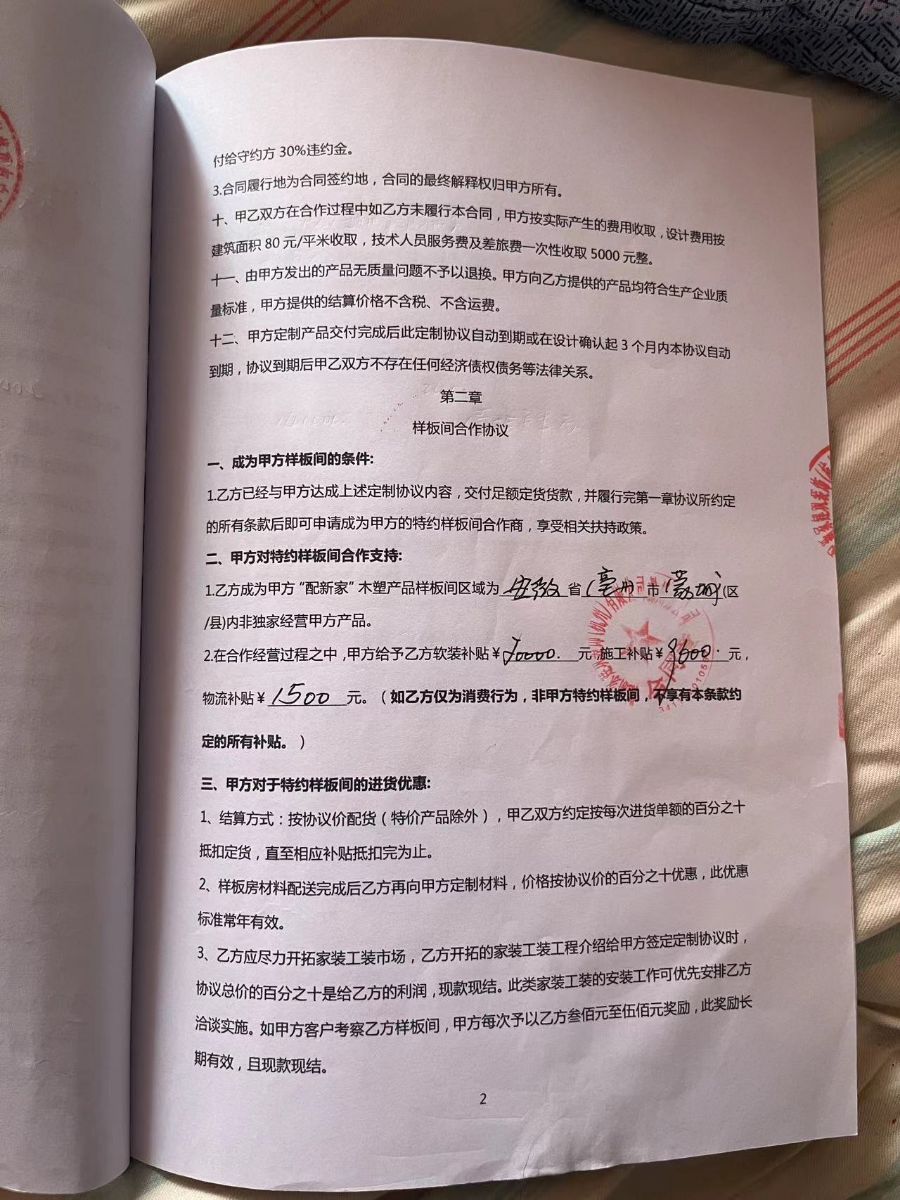 付给守约方 30%违约金。
3.合同履行地为合同签约地，合同的最终解释权归甲方所有。
十、甲乙双方在合作过程中如乙方未履行本合同，甲方按实际产生的费用收取，设计费用按
建筑面积 80 元/平米收取，技术人员服务费及差旅费一次性收取 5000 元整。
十一、由甲方发出的产品无质量问题不予以退换。甲方向乙方提供的产品均符合生产企业质
量标准，甲方提供的结算价格不含税、不含运费。
十二、甲方定制产品交付完成后此定制协议自动到期或在设计确认起 3 个月内本协议自动
到期，协议到期后甲乙双方不存在任何经济债权债务等法律关系。
第二章
样板间合作协议
一、成为甲方样板间的条件:
1.乙方已经与甲方达成上述定制协议内容，交付足额定货货款，并履行完第一章协议所约定
的所有条款后即可申请成为甲方的特约样板间合作商，享受相关扶持政策。
二、甲方对特约样板间合作支持:
1.乙方成为甲方“配新家”木塑产品样板间区域为 安徽 省 亳州 市 蒙城 (区
/县)内非独家经营甲方产品。
2.在合作经营过程之中，甲方给予乙方软装补贴￥ 元 施工补贴￥9600. 元，
物流补贴￥1500 元。（如乙方仅为消费行为，非甲方特约样板间，不享有本条款约
定的所有补贴。）
三、甲方对于特约样板间的进货优惠:
1、结算方式：按协议价配货（特价产品除外），甲乙双方约定按每次进货单额的百分之十
抵扣定货，直至相应补贴抵扣完为止。
2、样板房材料配送完成后乙方再向甲方定制材料，价格按协议价的百分之十优惠，此优惠
标准常年有效。
3、乙方应尽力开拓家装工装市场，乙方开拓的家装工装工程介绍给甲方签定定制协议时，
协议总价的百分之十是给乙方的利润，现款现结。此类家装工装的安装工作可优先安排乙方
洽谈实施。如甲方客户考察乙方样板间，甲方每次予以乙方叁佰元至伍佰元奖励，此奖励长
期有效，且现款现结。
2